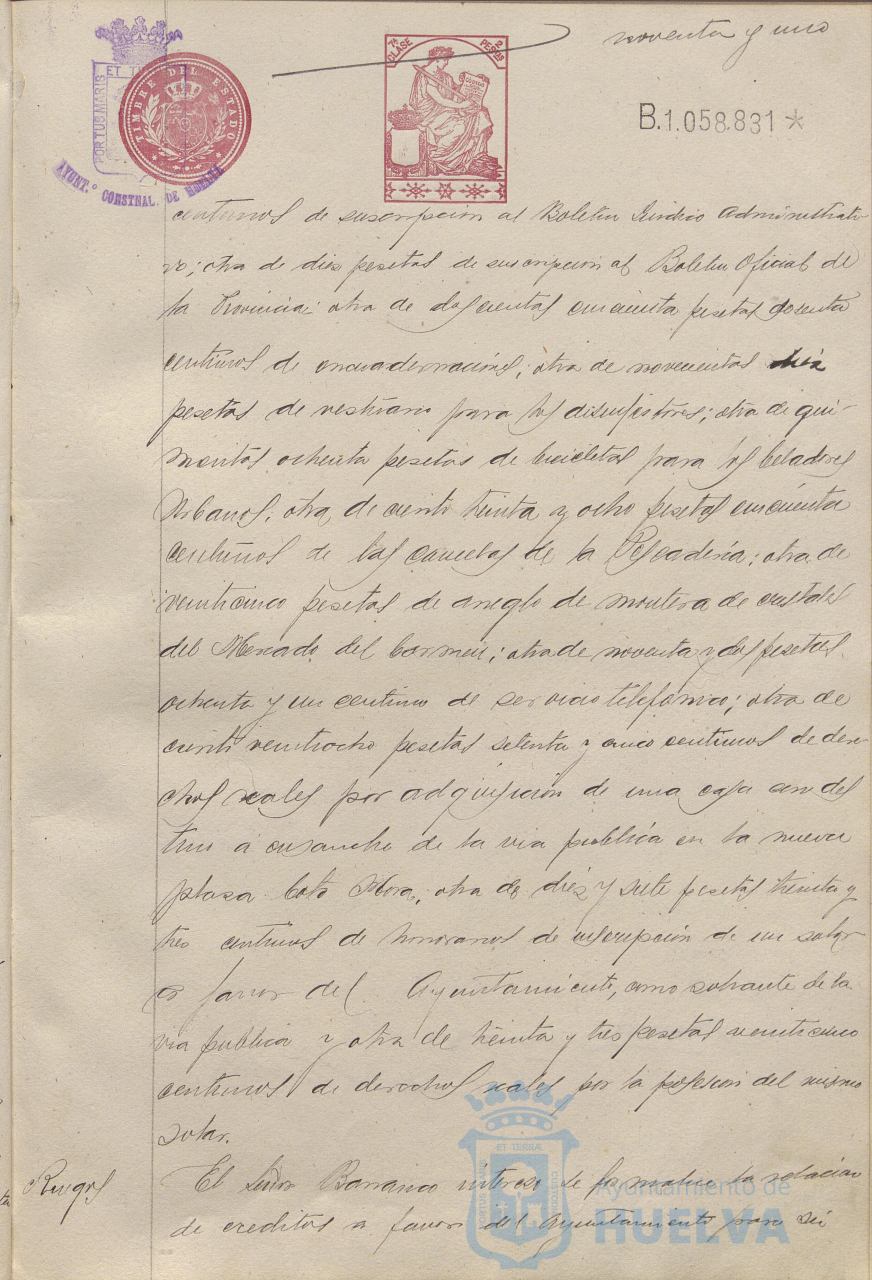 noventa y uno
7ª CLASE
2 PESETAS
B.1.058.831 *
PORTUS MARIS ET
TIMBRE DEL ESTADO
AYUNT.º CONSTNAL. DE HUELVA
centimos de suscripcion al Boletin Juridico Administrati-
vo; otra de diez pesetas de suscripcion al Boletin Oficial de
la Provincia; otra de doscientas cincuenta pesetas sesenta
centimos de encuadernaciones; otra de novecientas diez
pesetas de vestuario para los desinfectores; otra de qui-
nientas ochenta pesetas de bicicletas para los Celadores
Urbanos; otra de ciento treinta y ocho pesetas cincuenta
centimos de las canietas de la Pescaderia; otra de
veinticinco pesetas de arreglo de montera de cristales
del Mercado del Carmen; otra de noventa y dos pesetas
ochenta y un centimo de servicio telefonico; otra de
ciento veintiocho pesetas setenta y cinco centimos de dere-
chos reales por adquisicion de una casa con des
tino á ensanche de la via publica en la nueva
plaza Coto Mora; otra de diez y siete pesetas treinta y
tres centimos de honorarios de inscripción de un solar
a favor del Ayuntamiento, como sobrante de la
via publica y otra de treinta y tres pesetas veinticinco
centimos de derechos reales por la posesion del mismo
solar.
Ruegos
El Señor Barranco intereso se formalice la relacion
de creditos a favor del Ayuntamiento para su
ET TERRÆ
Ayuntamiento de
HUELVA